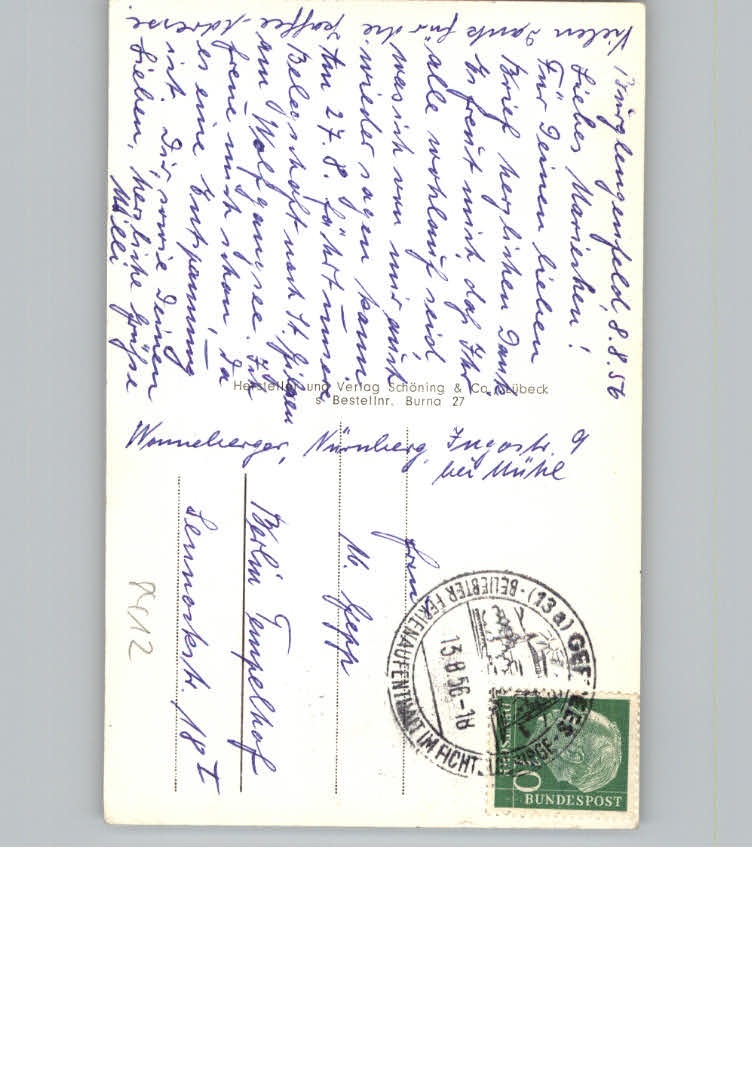 Vielen Dank für die Kaffee-Adresse.
Burglengenfeld, 8.8.56
Liebes Mariechen!
Für Deinen lieben
Brief herzlichen Dank.
Es freut mich, daß Ihr
alle wohlauf seid,
was ich von mir auch
wieder sagen kann.
Am 27.8. fährt unsere
Belegschaft nach St. Gilgen
am Wolfgangsee. Ich
freue mich schon, da
es eine Entspannung
ist. Dir, sowie Deinen
Lieben, herzliche Grüße
Milli
Hersteller und Verlag Schöning & Co., Lübeck
Bestellnr. Burna 27
Wonneberger, Nürnberg, Ingostr. 9
bei Mühl
Frau
M. Gepp
Berlin Tempelhof
18 I
(13a) GEFREES
BELIEBTER FERIENAUFENTHALT IM FICHTELGEBIRGE
13.8.56-18
DEUTSCHE
BUNDESPOST